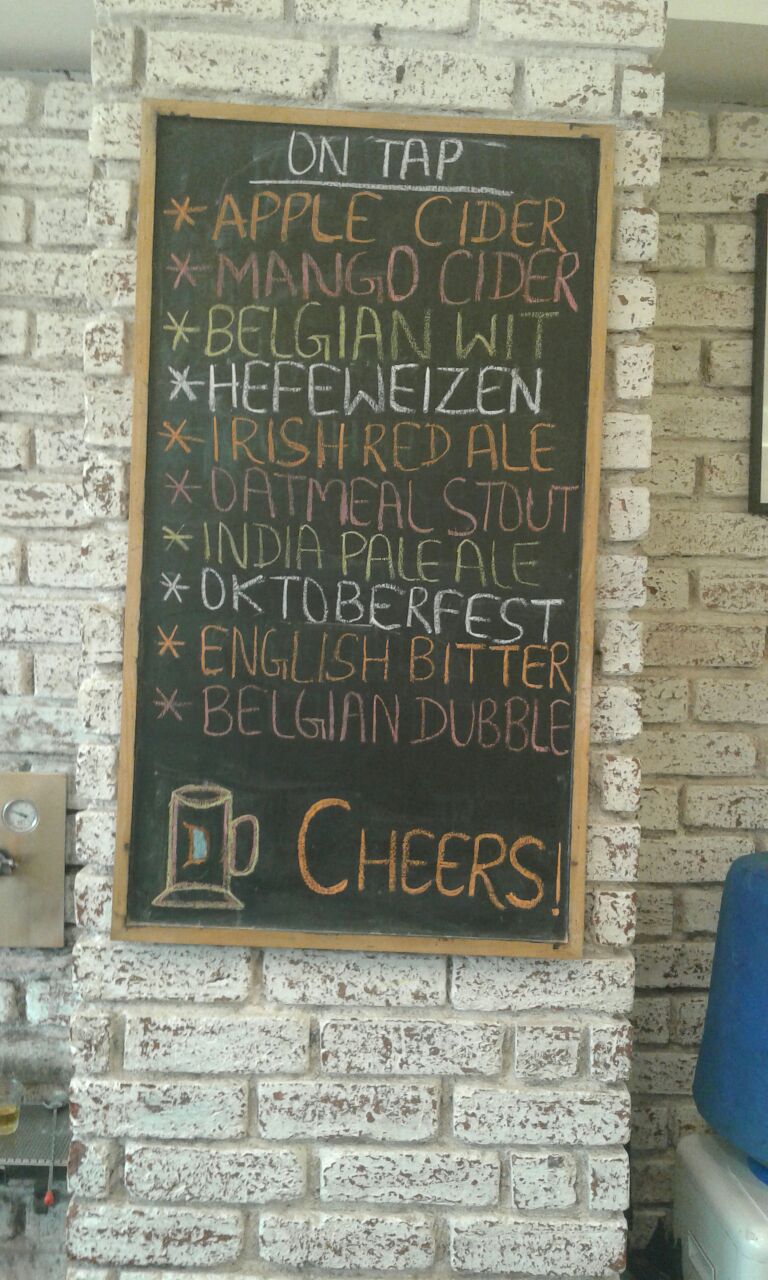 ON TAP
* APPLE CIDER
* MANGO CIDER
* BELGIAN WIT
* HEFEWEIZEN
* IRISH RED ALE
* OATMEAL STOUT
* INDIA PALE ALE
* OKTOBERFEST
* ENGLISH BITTER
* BELGIAN DUBBLE
D
CHEERS!